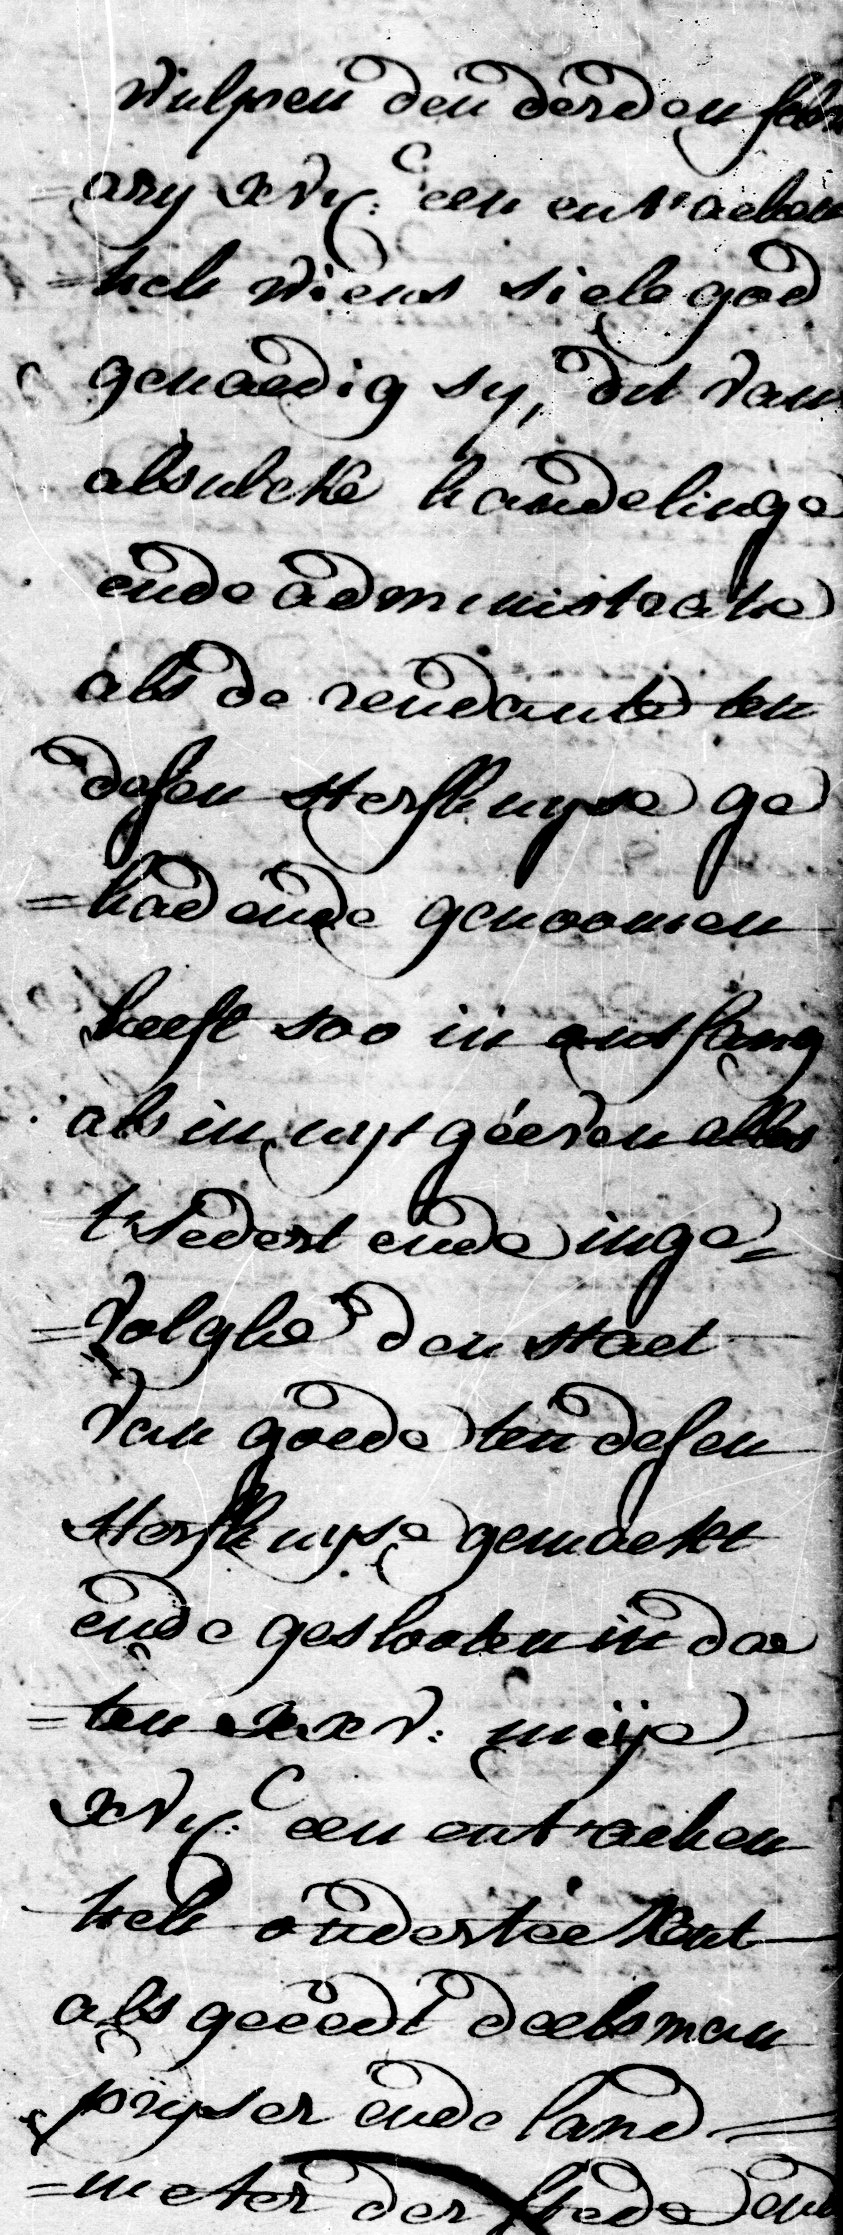 Wulpen den derden febru
=ary xvij:c een en t'achen
=tich wiens siele god
genaedig sy, dit van
alsulcke handelinge
ende administratie
als de rendante ten
desen sterfhuyse ge
=had ende genoomen
heeft soo in ontfang
als in uytgéeven alles
t'sedert ende inge=
=volghe den staet
van goede ten desen
sterfhuyse gemaekt
ende geslooten in dae
=ten xxv: meije
xvij:c een en t'achen
tich onderteekent
als geeedt deelsman
pryser ende land=
=meter der stede ende